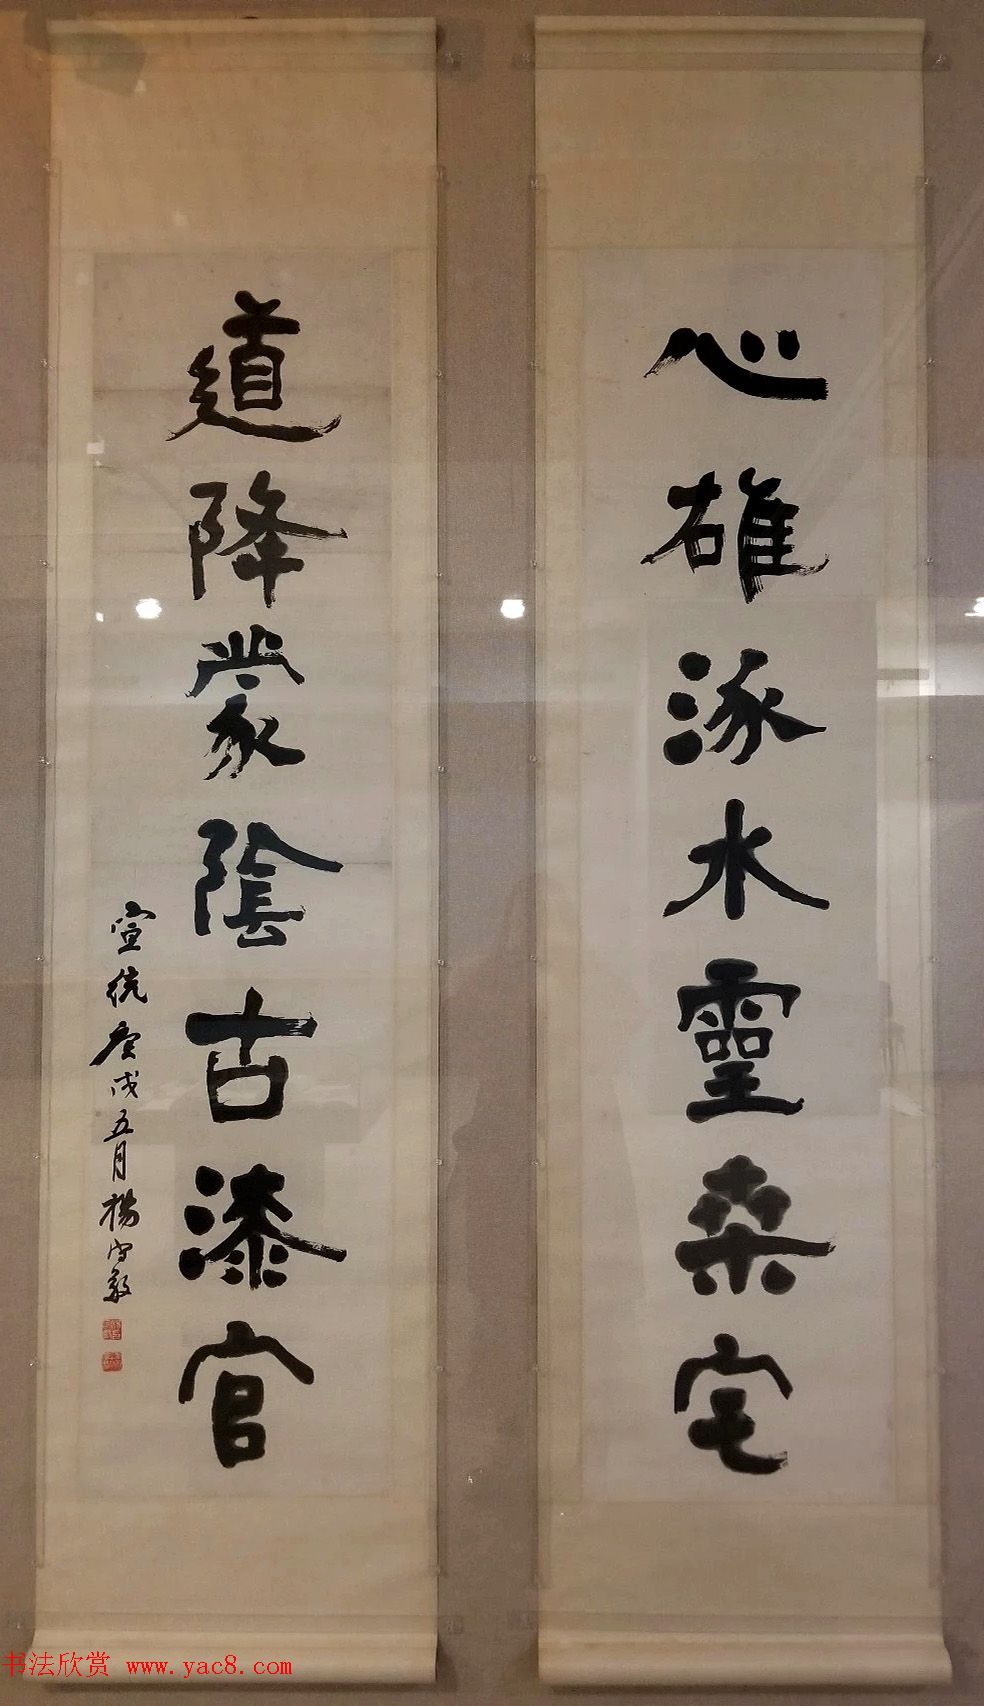 心雄涿水靈桑宅
道降蒙陰古漆官
宣統庚戌五月楊守敬
书法欣赏 www.yac8.com